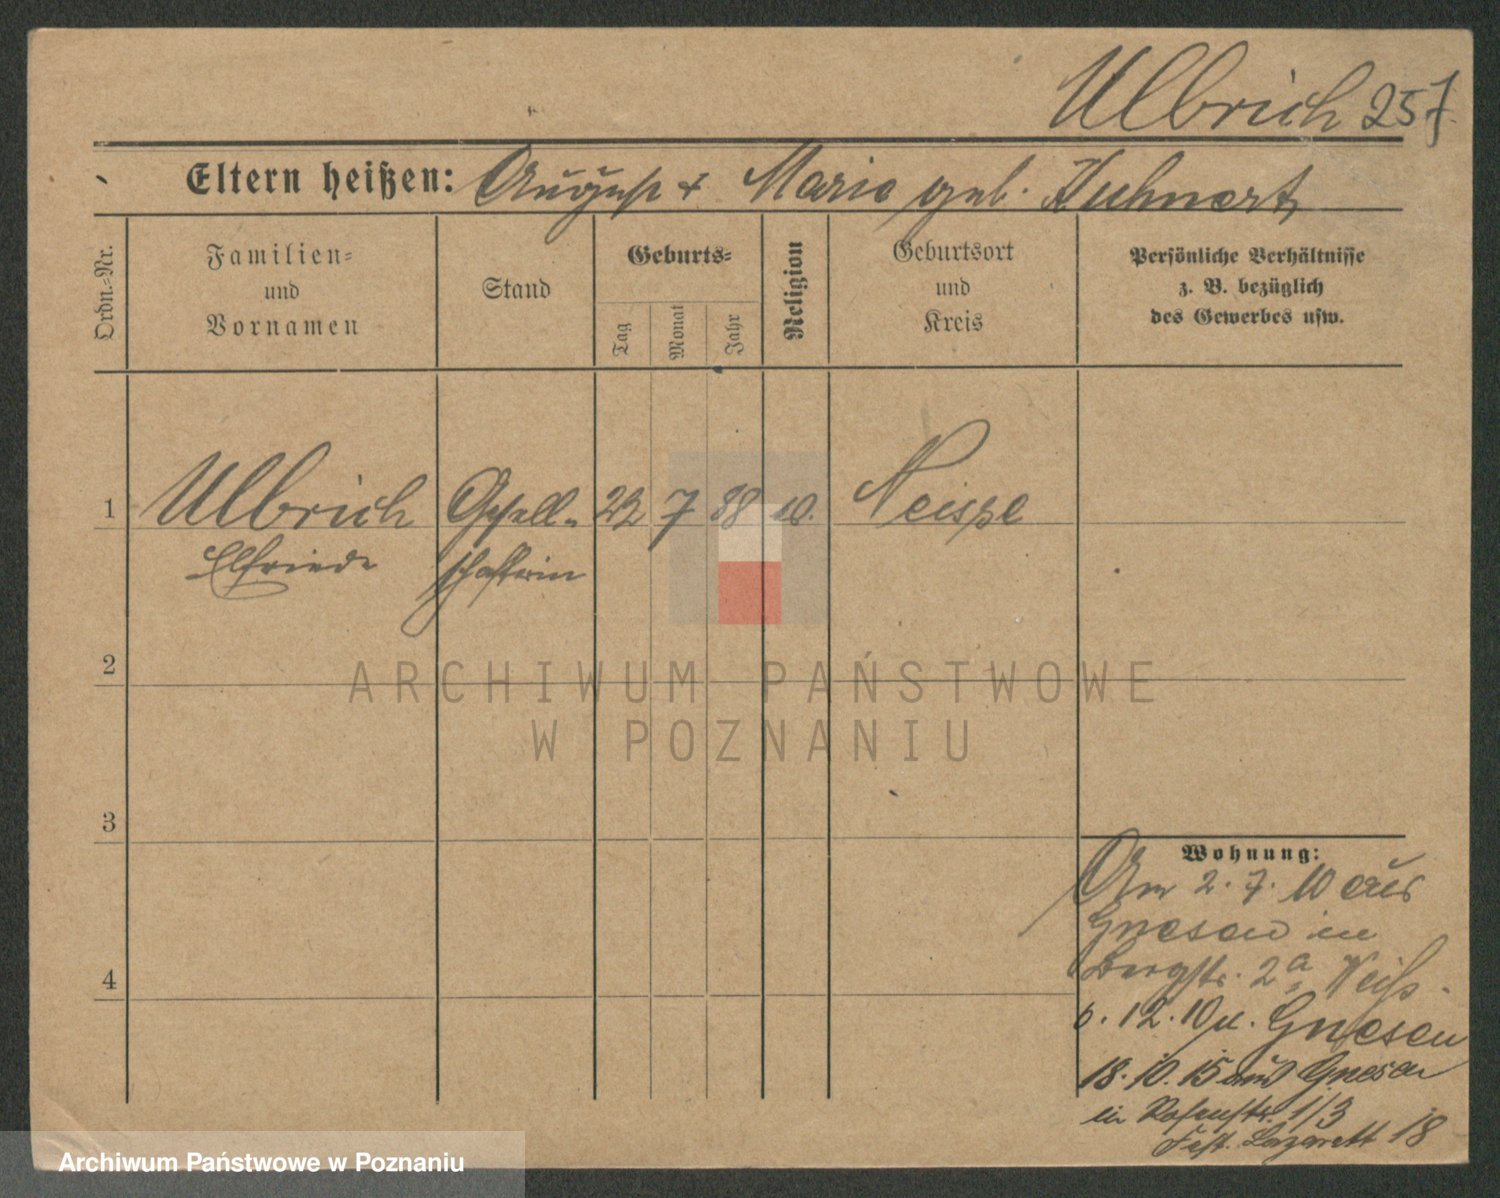 Ulbrich 257
Eltern heißen: August + Marie geb. Kuhnert
Ordn.-Nr.
Familien-
und
Vornamen
Stand
Geburts-
Tag
Monat
Jahr
Religion
Geburtsort
und
Kreis
Persönliche Verhältnisse
z. B. bezüglich
des Gewerbes usw.
1 Ulbrich Gesell- 22 7 88 Neisse
Elfriede schafterin
2
3
4
Wohnung:
Am 2. 7. 10 aus
Gnesen in
Bergstr. 2a Weiß.
6. 12. 10 n. Gnesen
18. 10. 15 aus Gnesen
in 1/3
Fest. Lazarett 18
ARCHIWUM PAŃSTWOWE
W POZNANIU
Archiwum Państwowe w Poznaniu